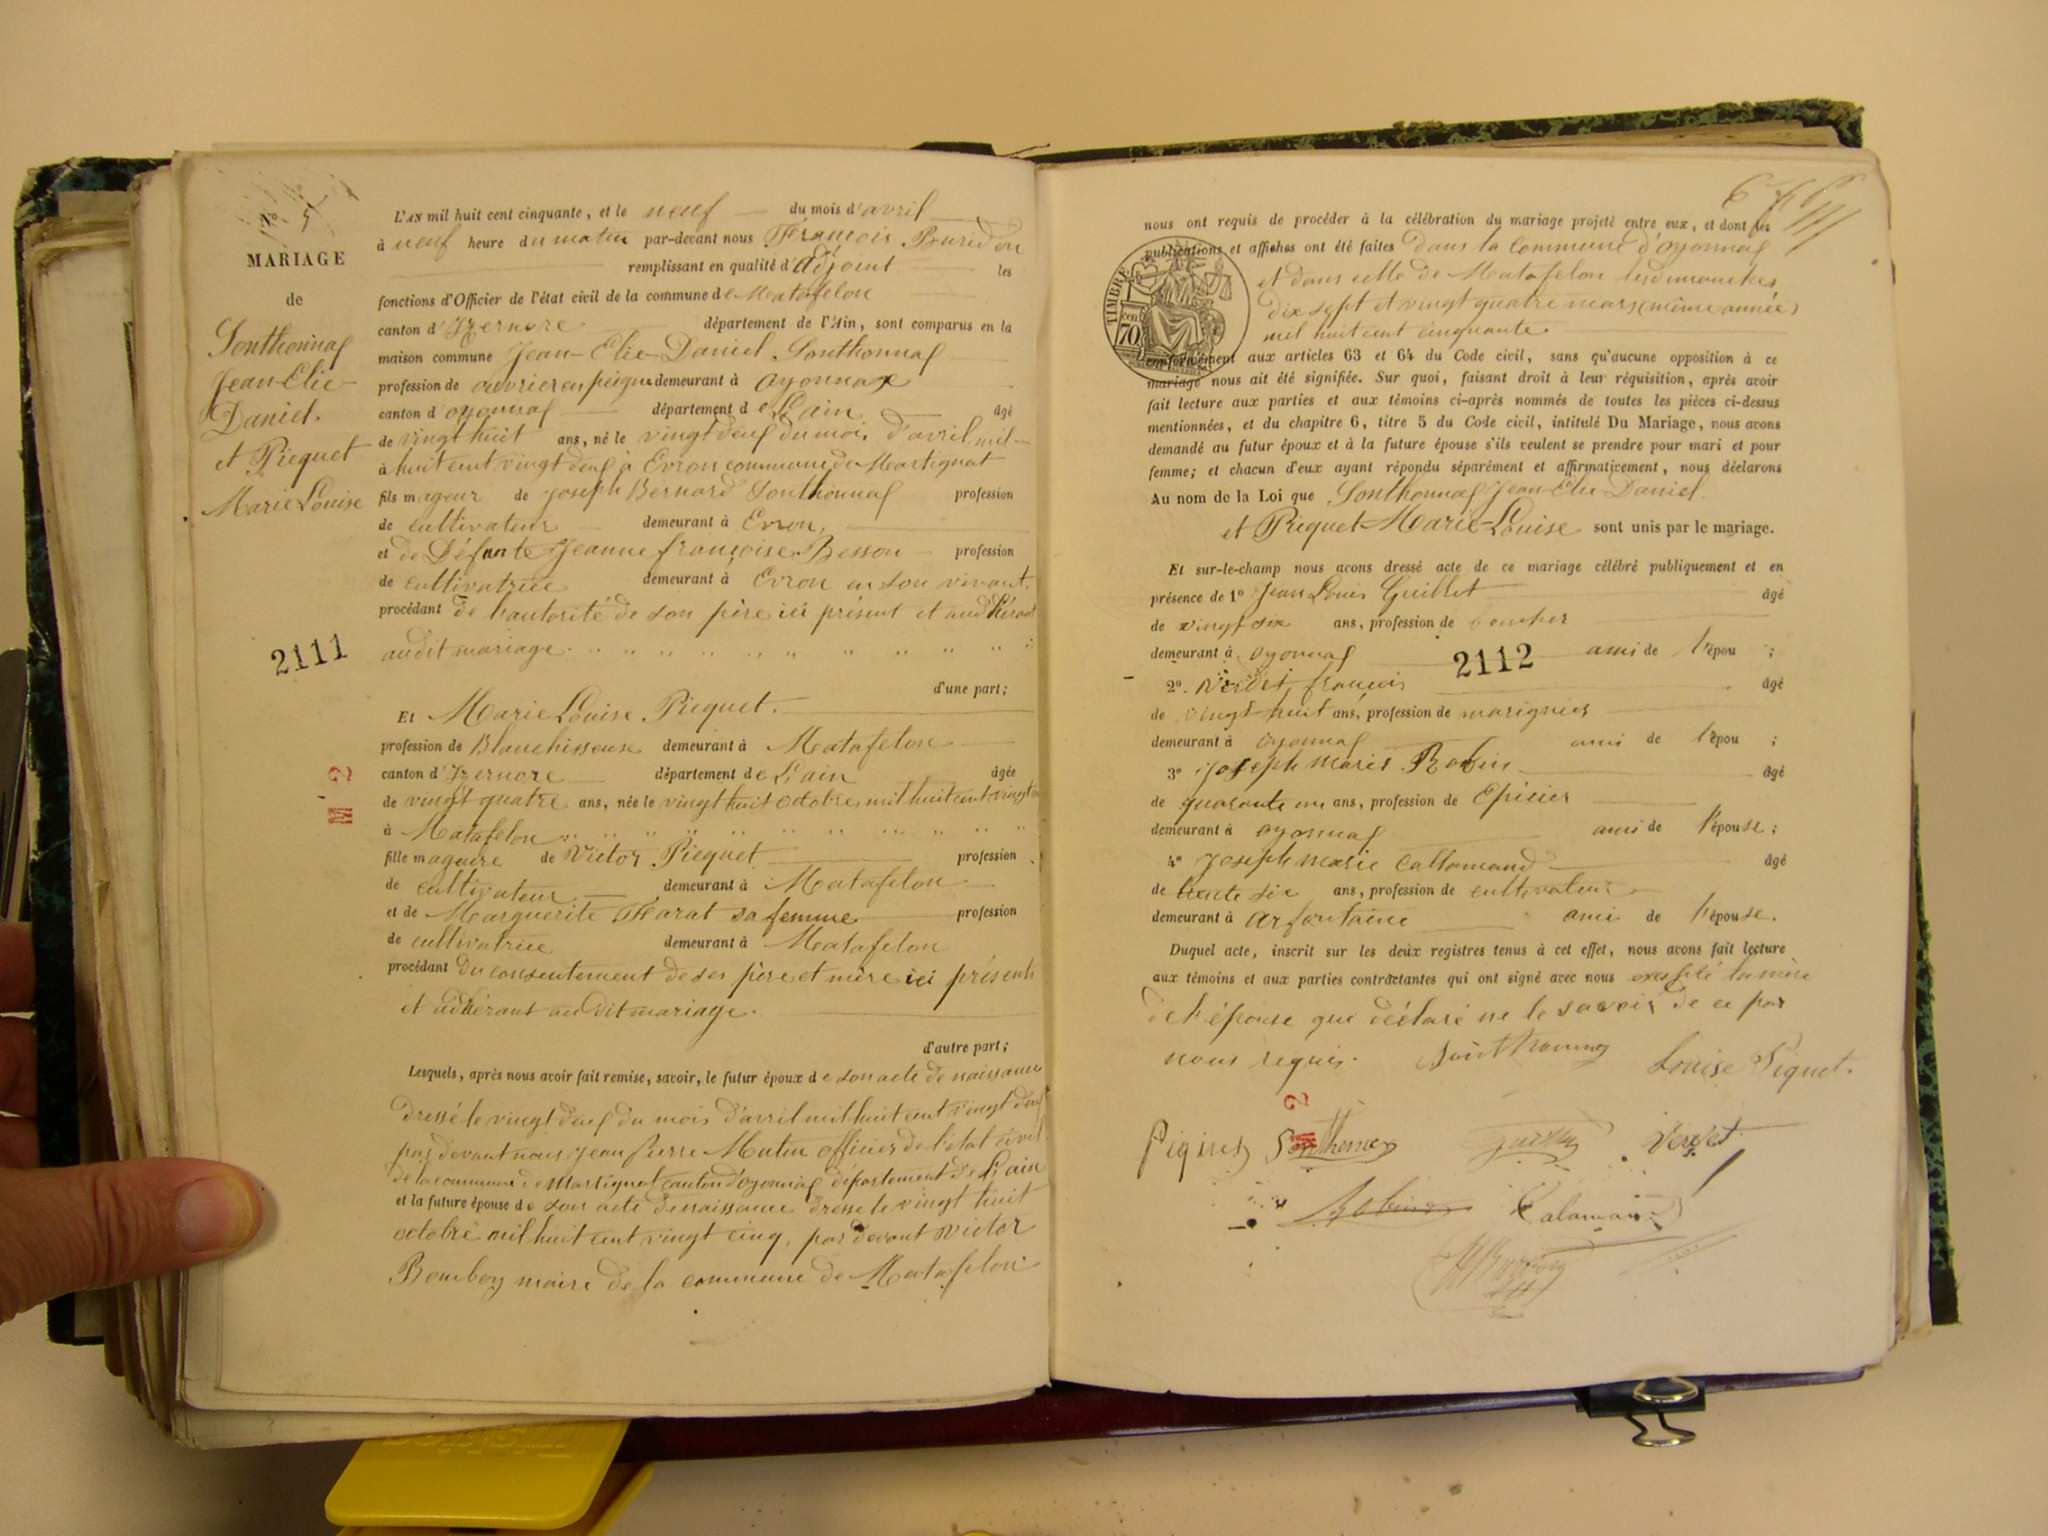 N° 5
MARIAGE
de
Sonthonnax
Jean-Elie-
Daniel.
et Picquet
Marie Louise
2111
L'AN mil huit cent cinquante, et le neuf du mois d'avril
à neuf heure du matin par-devant nous François Buridon
remplissant en qualité d'adjoint les
fonctions d'Officier de l'état civil de la commune de Matafelon
canton d'Izernore département de l'Ain, sont comparus en la
maison commune Jean-Elie-Daniel Sonthonnax
profession de ouvrier en peigne demeurant à Oyonnax
canton d'oyonnax département de L'ain âgé
de vingt huit ans, né le vingt deux du mois d'avril mil-
à huit cent vingt deux à Evron commune de Martignat
fils mageur de Joseph Bernard Sonthonnax profession
de cultivateur demeurant à Evron,
et de Défunte Jeanne françoise Besson profession
de cultivatrice demeurant à Evron en son vivant.
procédant de l'autorité de son père ici présent et audhérant
audit mariage.
d'une part;
Et Marie Louise Picquet.
profession de Blanchisseuse demeurant à Matafelon
canton d'Izernore département de L'ain âgée
de vingt quatre ans, née le vingt huit octobre mil huit cent vingt
à Matafelon
fille mageure de Victor Picquet profession
de cultivateur demeurant à Matafelon
et de Marguerite sa femme profession
de cultivatrice demeurant à Matafelon
procédant du consentement de ses père et mère ici présents
et adhérant audit mariage.
d'autre part;
Lesquels, après nous avoir fait remise, savoir, le futur époux de son acte de naissance
dressé le vingt deux du mois d'avril mil huit cent vingt deux
par devant nous Jean Pierre Mutin officier de l'état civil
de la commune de Martignat canton d'oyonnax département de L'ain
et la future épouse de son acte de naissance dressé le vingt huit
octobre mil huit cent vingt cinq, par devant Victor
Bomboy maire de la commune de Matafelon
nous ont requis de procéder à la célébration du mariage projeté entre eux, et dont les
publications et affiches ont été faites dans la commune d'oyonnax
et dans celle de Matafelon les dimanches
dix sept et vingt quatre mars (même année)
mil huit cent cinquante.
TIMBRE
70 cent
conformément aux articles 63 et 64 du Code civil, sans qu'aucune opposition à ce
mariage nous ait été signifiée. Sur quoi, faisant droit à leur réquisition, après avoir
fait lecture aux parties et aux témoins ci-après nommés de toutes les pièces ci-dessus
mentionnées, et du chapitre 6, titre 5 du Code civil, intitulé Du Mariage, nous avons
demandé au futur époux et à la future épouse s'ils veulent se prendre pour mari et pour
femme; et chacun d'eux ayant répondu séparément et affirmativement, nous déclarons
Au nom de la Loi que Sonthonnax Jean-Elie-Daniel.
et Picquet Marie-Louise sont unis par le mariage.
Et sur-le-champ nous avons dressé acte de ce mariage célébré publiquement et en
présence de 1° Jean Louis Guillet âgé
de vingt six ans, profession de boucher
demeurant à oyonnax ami de l'épou ;
2112
2° Verdet françois âgé
de vingt huit ans, profession de
demeurant à oyonnax ami de l'épou ;
3° Joseph Marie Robin âgé
de quarante un ans, profession de Epicier
demeurant à oyonnax ami de l'épouse;
4° Joseph Marie Callamand âgé
de trente six ans, profession de cultivateur
demeurant à arfontaine ami de l'épouse.
Duquel acte, inscrit sur les deux registres tenus à cet effet, nous avons fait lecture
aux témoins et aux parties contractantes qui ont signé avec nous excepté la mère
de l'épouse qui déclaré ne le savoir de ce par
nous requis. Sonthonnax Louise Piquet.
Sonthonnax Verdet
Robin Calamand